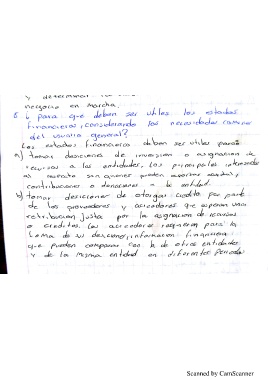 y determinar
negocio en marcha.
6 ¿ para que deben ser utiles los estados
financieros, considerando las necesidades comunes
del usuario general?
Los estados financieros deben ser utiles para:
a) tomar decisiones de inversion o asignacion de
recursos a las entidades. Los principales interesados
al son quienes pueden
contribuciones o donaciones a la entidad.
b) tomar desiciones de otorgar credito por parte
de los proveedores y acreedores que esperan una
retribucion justa por la asignacion de recursos
o creditos. Los acreedores requieren para la
toma de su desiciones, informacion financiera
que puedan comparar con la de otras entidades
y de la misma entidad en diferentes periodos
Scanned by CamScanner